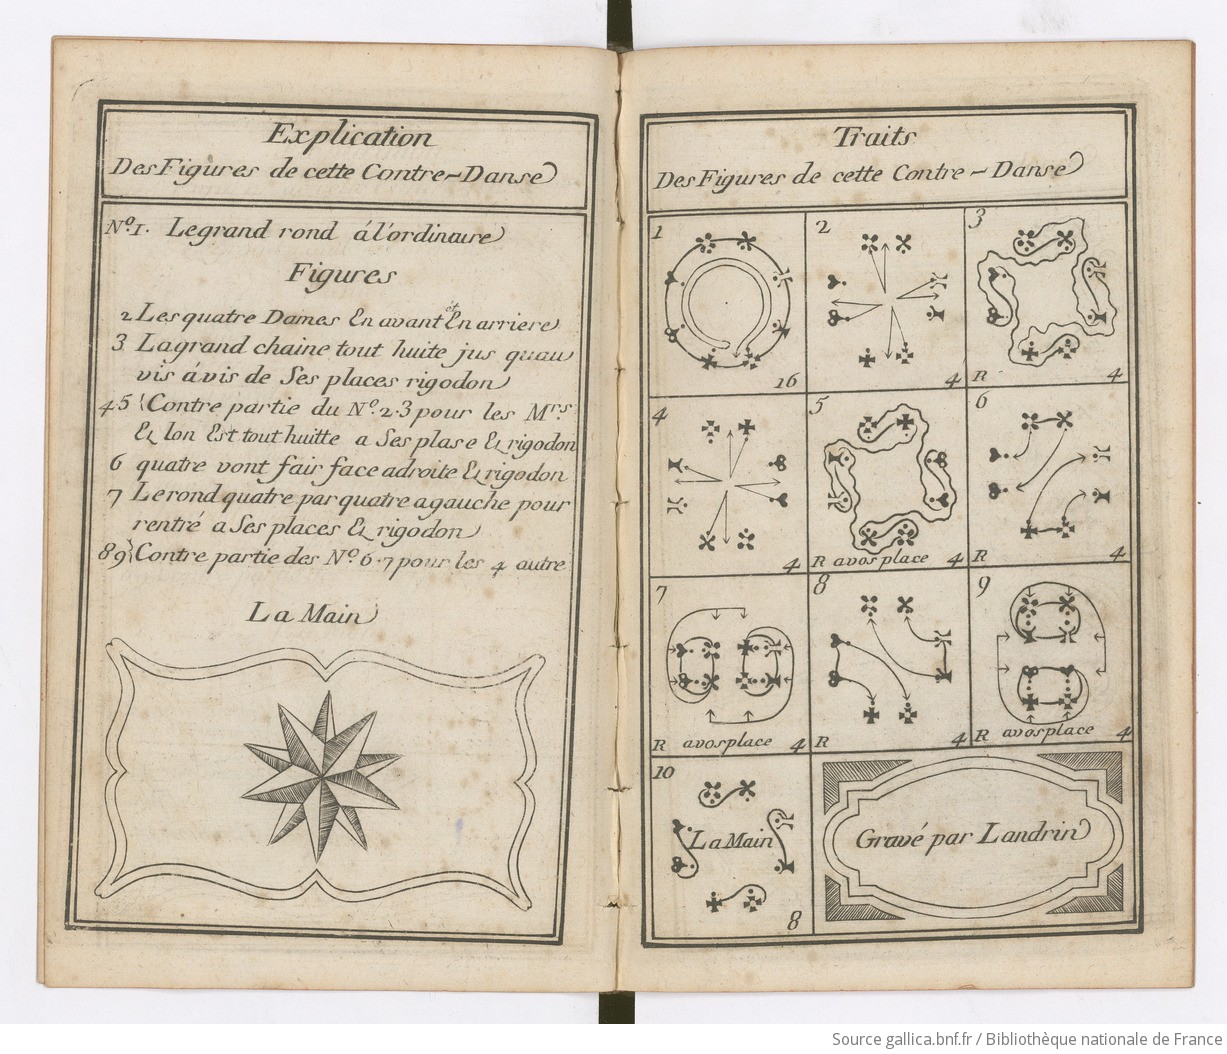 Explication
Des Figures de cette Contre-Danse
Nº1. Legrand rond á l'ordinaire
Figures
2 Les quatre Dames En avant et En arriere
3 Lagrand chaine tout huite jus quau
vis ávis de Ses places rigodon
4.5 Contre partie du Nº.2.3 pour les Mrs
Et lon Est tout huitte a Ses plase Et rigodon
6 quatre vont fair face adroite Et rigodon
7 Lerond quatre par quatre agauche pour
rentré a Ses places Et rigodon
89 Contre partie des Nº.6.7 pour les 4 autre
La Main
Traits
Des Figures de cette Contre-Danse
1
16
2
4
3
R 4
4
4
5
R avosplace 4
6
R 4
7
R avosplace 4
8
R 4
9
R avosplace 4
10
La Main
8
Gravé par Landrin
Source gallica.bnf.fr / Bibliothèque nationale de France